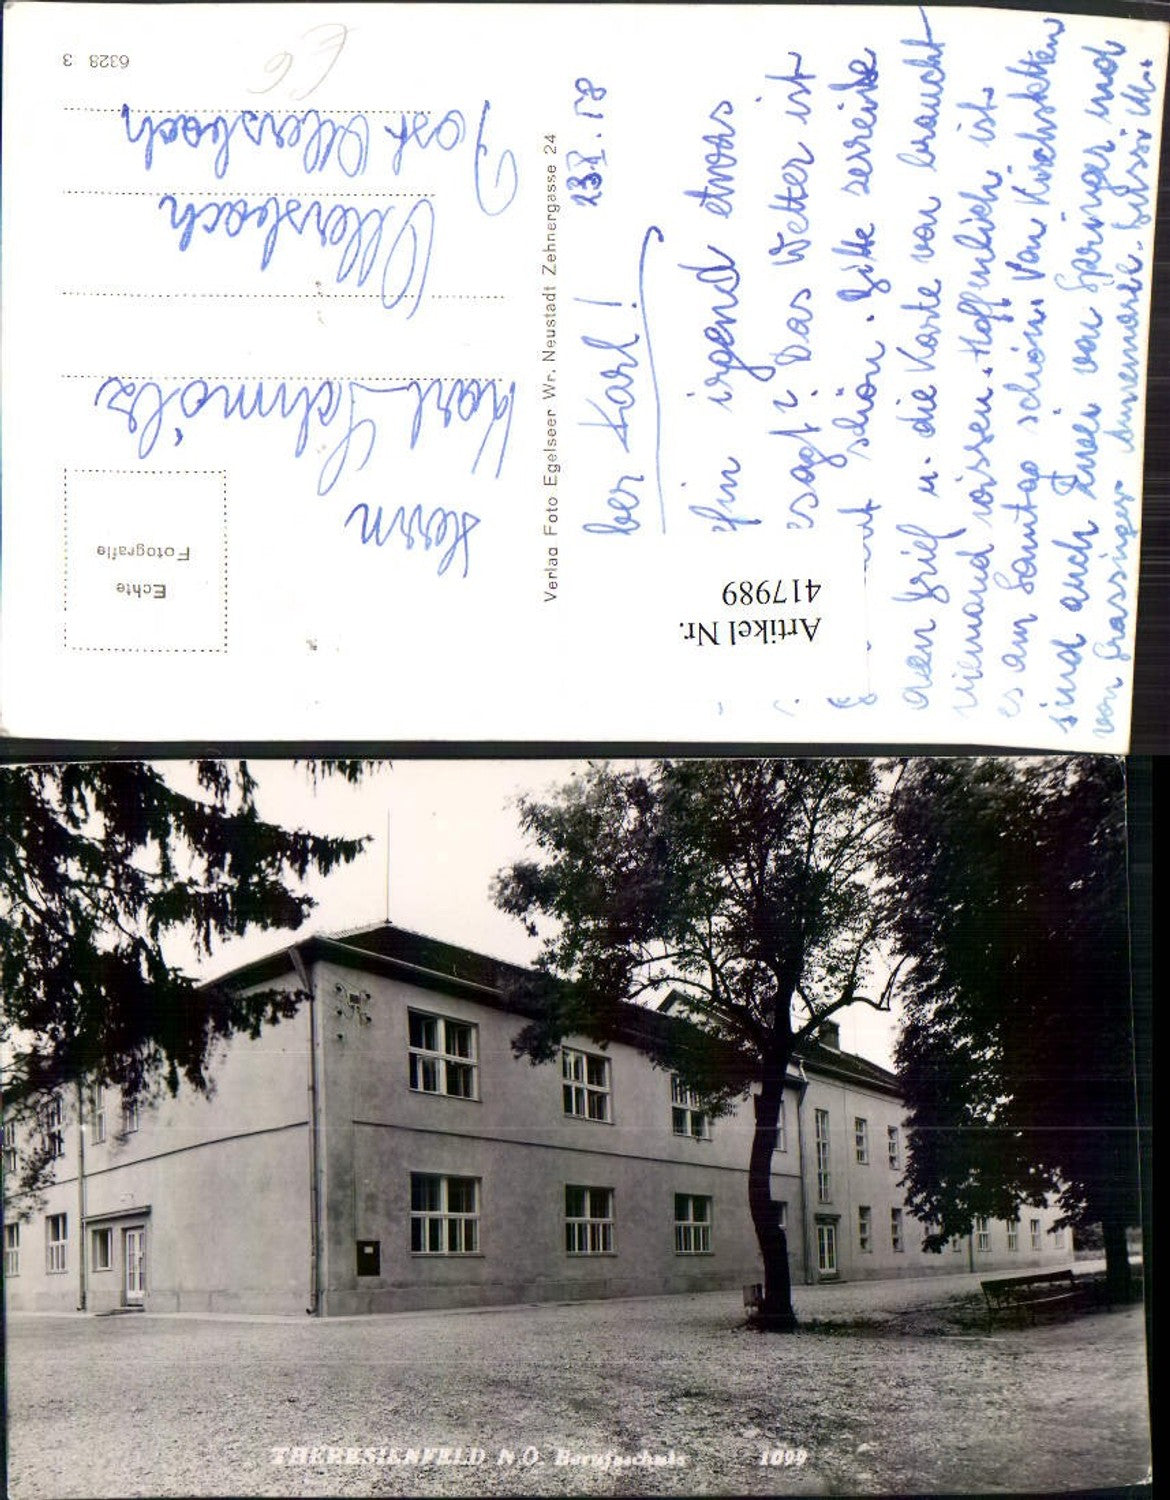 6328 3
Herrn
Karl Schmölz
Ollersbach
Post Ollersbach
Echte
Fotografie
Verlag Foto Egelseer Wr. Neustadt Zehnergasse 24
Artikel Nr.
417989
ber Karl!
irgend etwas
sagt? Das Wetter ist
schön. Bitte zerreiße
den Brief u. die Karte von braucht
niemand wissen. Hoffentlich ist
es am Sonntag schön. Von Kirchstetten
sind auch zwei von Springer und
von Grassinger Annemarie. Bussi
THERESIENFELD N.Ö. Berufsschule 1099